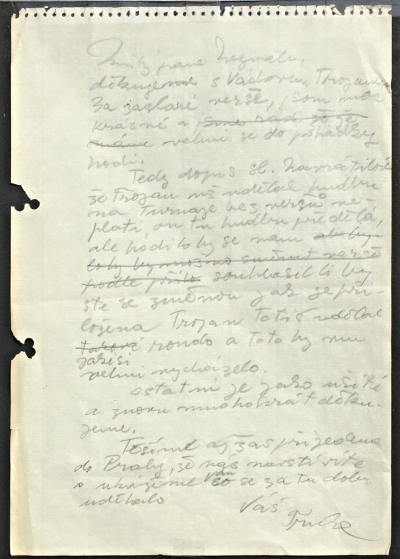 Milý pane Nezvale,
děkujeme s Václavem Trojanem
za zaslané verše, jsou moc
krásné a jsme rádi že je
máme velmi se do pohádky
hodí.
Tedy dopis sl. Navrátilové
že Trojan už udělal hudbu
na turnaje bez veršů ne-
platí, on tu hudbu předělá,
ale hodilo by se nám aby
bylo by možno změnit verše
podle příl. souhlasil-li by
ste se změnou jak je při-
ložena Trojan totiž udělal
takové rondo a toto by mu
jaksi
velmi vycházelo.
Ostatní je jako ušité
a znovu mnohokrát děku-
jeme.
Těšíme až zas přijedete
do Prahy, že nás navštívíte
a ukážeme Vám co se za tu dobu
udělalo
Váš Trnka